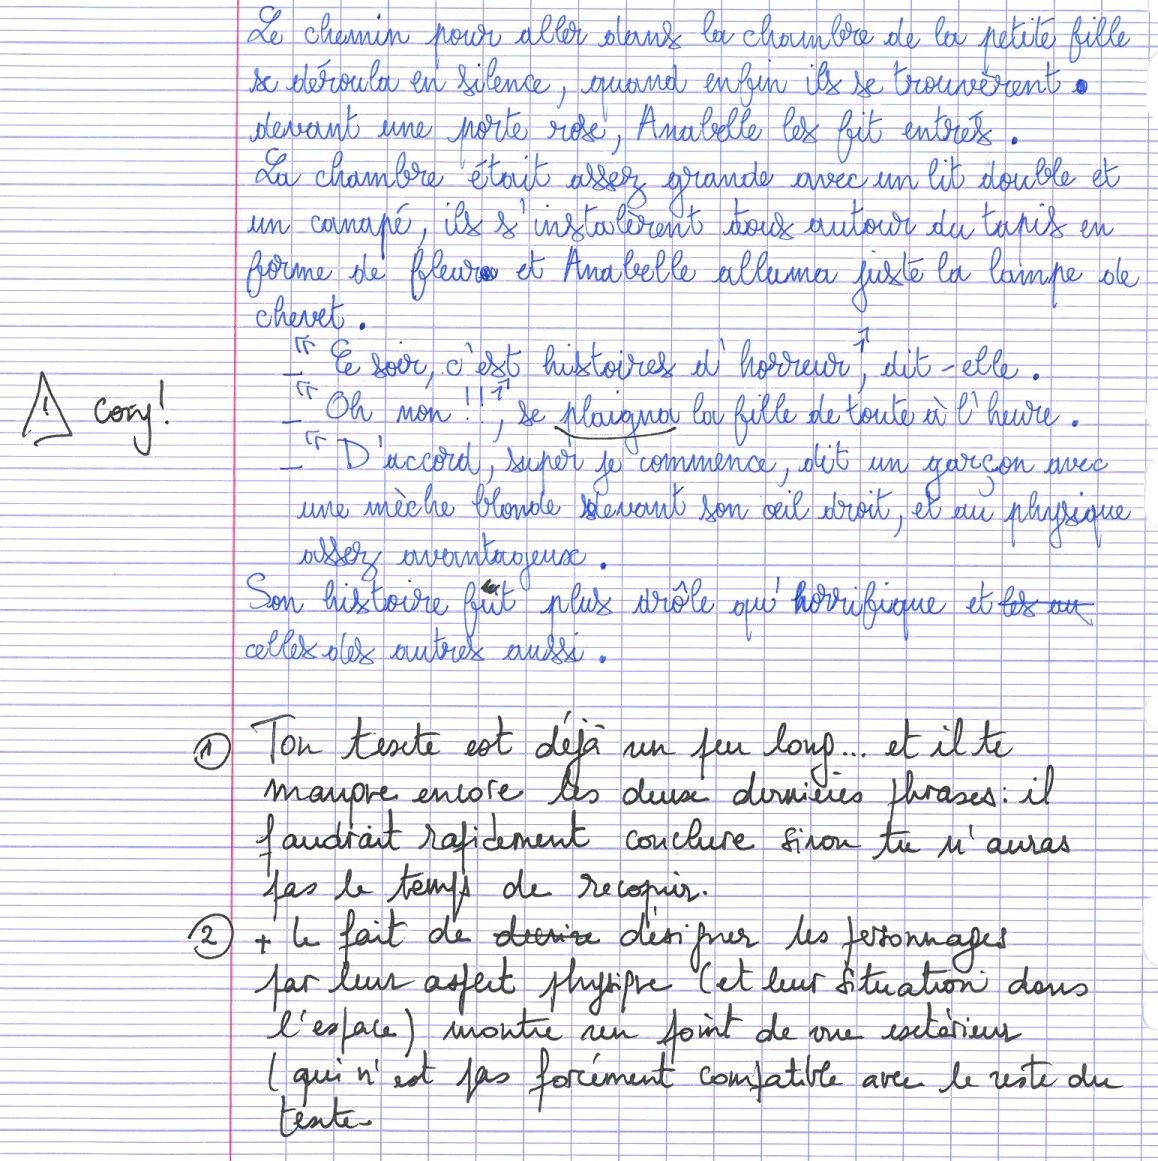 Le chemin pour aller dans la chambre de la petite fille
se déroula en silence, quand enfin ils se trouvèrent
devant une porte rose, Anabelle les fit entrés.
La chambre était assez grande avec un lit double et
un canapé, ils s'instalèrent tous autour du tapis en
forme de fleur et Anabelle alluma juste la lampe de
chevet.
_ " Ce soir, c'est histoires d'horreur", dit-elle.
_ " Oh non !!!", se plaigna la fille de toute à l'heure.
⚠ conj!
_ " D'accord, super je commence, dit un garçon avec
une mèche blonde devant son œil droit, et au physique
assez avantageux.
Son histoire fut plus drôle qu'horrifique et les au
celles des autres aussi.
① Ton texte est déjà un peu long... et il te
manque encore les deux dernières phrases : il
faudrait rapidement conclure sinon tu n'auras
pas le temps de recopier.
② + le fait de décrire désigner les personnages
par leur aspect physique (et leur situation dans
l'espace) montre un point de vue extérieur
(qui n'est pas forcément compatible avec le reste du
texte